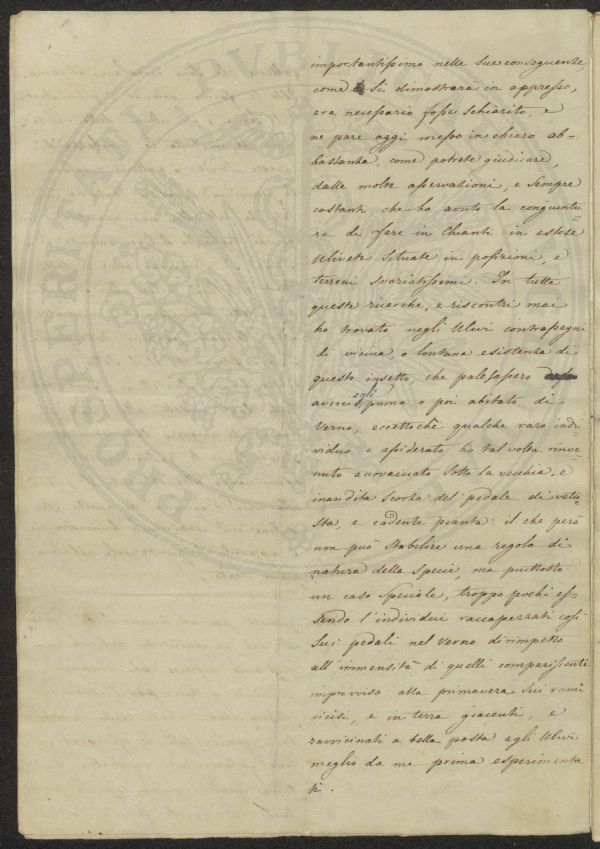 importantissimo nelle sue conseguenze,
come si dimostrerà in appresso,
era necessario fosse schiarito, e
ne pare oggi messo in chiaro ab=
bastanza, come potrete giudicare,
dalle molte osservazioni, e sempre
costanti che ho avuto la congiuntu=
ra di fare in Chianti in estese
Ulivete situate in posizioni, e
terreni svariatissimi. In tutte
queste ricerche, e riscontri mai
ho trovato negli Ulivi contrassegni
di vicina, o lontana esistenza di
questo insetto, che palesassero
averci egli prima o poi abitato di
Verno, eccettochè qualche raro indi=
viduo e assiderato ho tal volta rinve=
nuto accovacciato sotto la vecchia, e
inaridita scorza del pedale di vetu=
sta, e cadente pianta: il che però
non può stabilire una regola di
natura della specie, ma piuttosto
un caso speciale, troppo pochi es=
sendo l'individui raccapezzati così
sui pedali nel Verno dirimpetto
all'immensità di quelli compariscenti
improvviso alla primavera sui rami
sicisi, e in terra giacenti, e
ravvicinati a bella posta agli Ulivi
meglio da me prima esperimenta
ti.